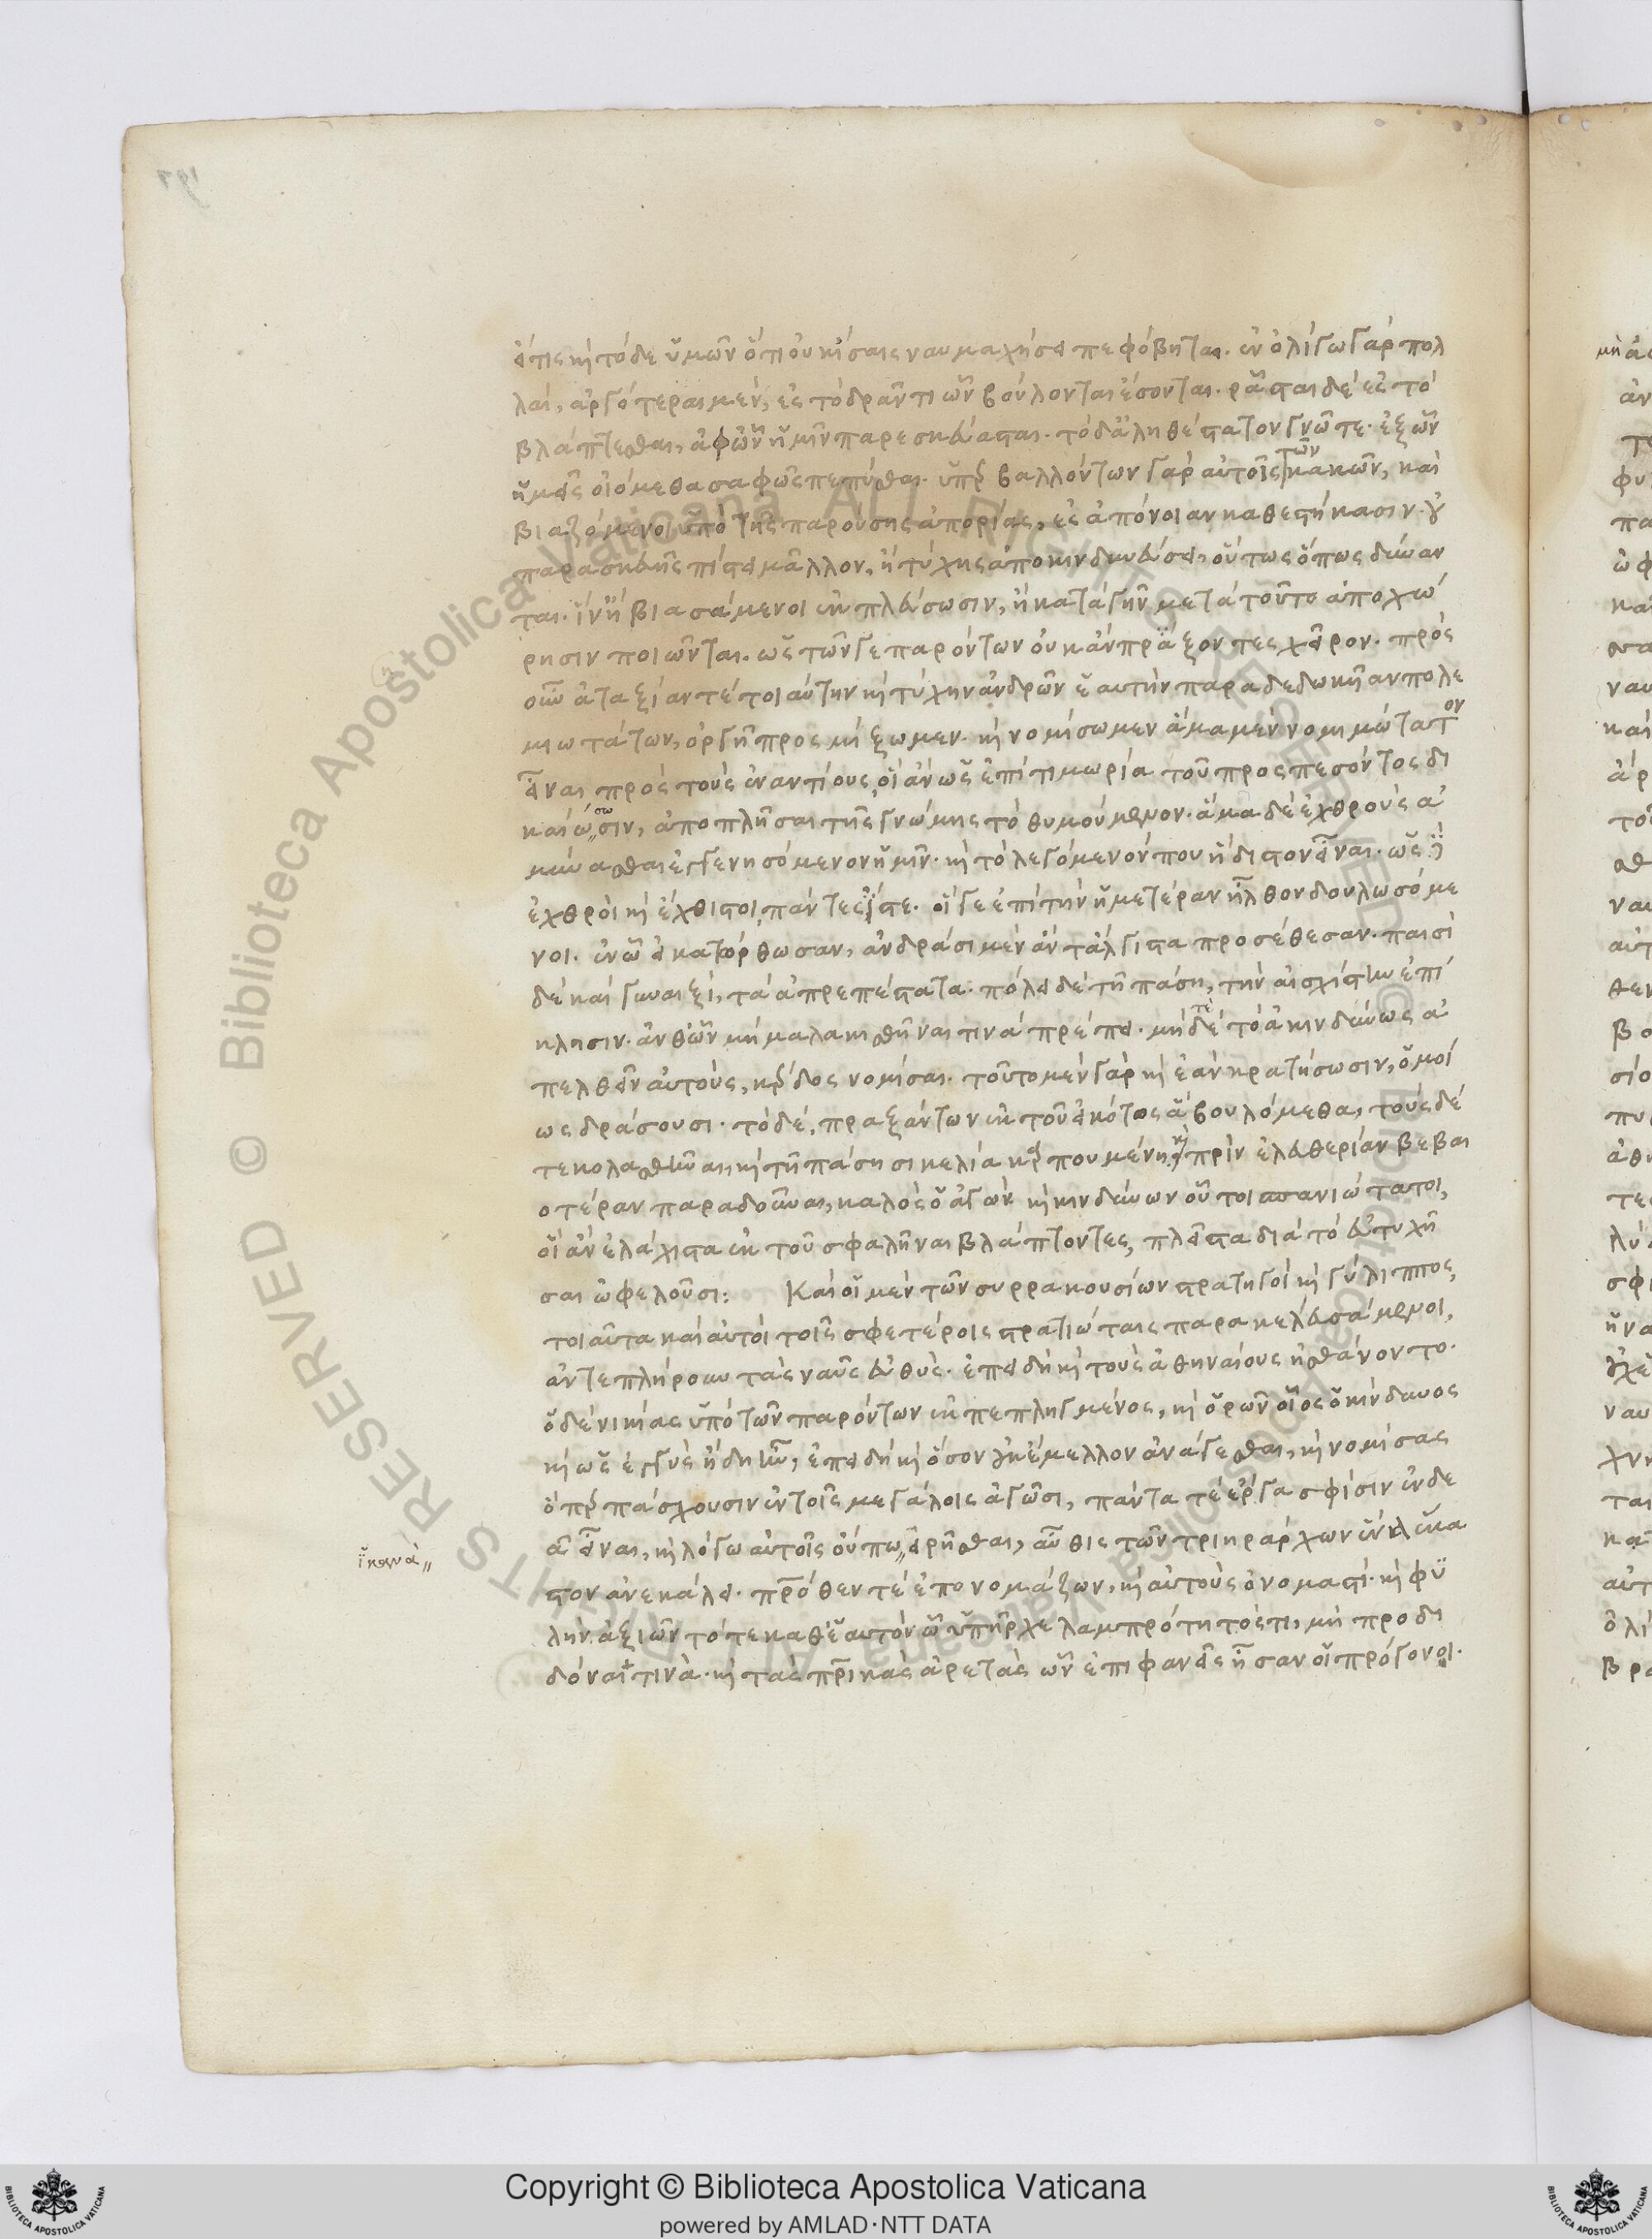 εἴ τις καὶ τόδε ὑμῶν ὅτι οὐκ ἴσαις ναυμαχήσει πεφόβηται. ἐν ὀλίγω γὰρ πολ
λαὶ, ἀργότεραι μὲν, ἐς τὸ δρᾶν τι ὧν βούλονται ἔσονται. ῥᾶσται δὲ ἐς τὸ
βλάπτεσθαι, ἀφ' ὧν ἡμῖν παρεσκεύασται. τὸ δ' ἀληθέστατον γνῶτε. ἐξ ὧν
ἡμεῖς οἰόμεθα σαφῶς πεπύσθαι. ὑπερβαλλόντων γὰρ αὐτοῖς τῶν κακῶν, καὶ
βιαζόμενοι ὑπὸ τῆς παρούσης ἀπορίας, ἐς ἀπόνοιαν καθεστήκασιν. οὐ
παρασκευῆς πίστει μᾶλλον, ἢ τύχης ἀποκινδυνεύσει, οὕτως ὅπως δύναν
ται. ἵν' ἢ βιασάμενοι ἐκπλεύσωσιν, ἢ κατὰ γῆν μετὰ τοῦτο ἀποχώ
ρησιν ποιῶνται. ὡς τῶν γε παρόντων οὐκ ἂν πράξοντες χεῖρον. πρὸς
οὖν ἀταξίαν τε τοιαύτην καὶ τύχην ἀνδρῶν ἑαυτὴν παραδεδωκυῖαν πολε
μιωτάτων, ὀργῆ προσμίξωμεν. καὶ νομίσωμεν ἅμα μὲν νομιμώτατον
εἶναι πρὸς τοὺς ἐναντίους, οἳ ἂν ὡς ἐπὶ τιμωρία τοῦ προσπεσόντος δι
καιώσωσιν, ἀποπλῆσαι τῆς γνώμης τὸ θυμούμενον. ἅμα δὲ ἐχθροὺς ἀ
μύνασθαι ἐγγενησόμενον ἡμῖν. καὶ τὸ λεγόμενόν που ἥδιστον εἶναι. ὡς δὲ
ἐχθροὶ καὶ ἔχθιστοι, πάντες ἴστε. οἵ γε ἐπὶ τὴν ἡμετέραν ἦλθον δουλωσόμε
νοι. ἐν ὧ εἰ κατώρθωσαν, ἀνδράσι μὲν ἂν τἄλγιστα προσέθεσαν. παισὶ
δὲ καὶ γυναιξὶ, τὰ ἀπρεπέστατα. πόλει δὲ τῆ πάση, τὴν αἰσχίστην ἐπί
κλησιν. ἀνθ' ὧν μὴ μαλακισθῆναί τινα πρέπει. μὴ δὲ τὸ ἀκινδύνως ἀ
πελθεῖν αὐτοὺς, κέρδος νομίσαι. τοῦτο μὲν γὰρ καὶ ἐὰν κρατήσωσιν, ὁμοί
ως δράσουσι. τὸ δὲ, πραξάντων ἐκ τοῦ εἰκότος ἃ βουλόμεθα, τούσδε
τε κολασθῆναι, καὶ τῆ πάση σικελία καρπουμένη καὶ πρὶν ἐλευθερίαν βεβαι
οτέραν παραδοῦναι, καλὸς ὁ ἀγών. καὶ κινδύνων οὗτοι σπανιώτατοι,
οἳ ἂν ἐλάχιστα ἐκ τοῦ σφαλῆναι βλάπτοντες, πλεῖστα διὰ τὸ εὐτυχῆ
σαι ὠφελοῦσι: Καὶ οἱ μὲν τῶν συρρακουσίων στρατηγοὶ καὶ γύλιππος,
τοιαῦτα καὶ αὐτοὶ τοῖς σφετέροις στρατιώταις παρακελευσάμενοι,
ἀντεπλήρουν τὰς ναῦς εὐθὺς. ἐπειδὴ καὶ τοὺς ἀθηναίους ἠσθάνοντο.
ὁ δὲ νικίας ὑπὸ τῶν παρόντων ἐκπεπληγμένος, καὶ ὁρῶν οἷος ὁ κίνδυνος
καὶ ὡς ἐγγὺς ἤδη ἦν, ἐπειδὴ καὶ ὅσον οὐκ ἔμελλον ἀνάγεσθαι, καὶ νομίσας
ὅπερ πάσχουσιν ἐν τοῖς μεγάλοις ἀγῶσι, πάντα τε ἔργα σφίσιν ἐνδε
ᾶ εἶναι, καὶ λόγω αὐτοῖς οὔπω εἰρῆσθαι, αὖθις τῶν τριηράρχων ἕνα ἕκα
ἱκανὰ
στον ἀνεκάλει. πατρόθεν τε ἐπονομάζων, καὶ αὐτοὺς ὀνομαστὶ. καὶ φυ
λὴν. ἀξιῶν τό τε καθ' ἑαυτὸν ὧ ὑπῆρχε λαμπρότητός τι, μὴ προδι
δόναι τινὰ. καὶ τὰς πατρικὰς ἀρετὰς ὧν ἐπιφανεῖς ἦσαν οἱ πρόγονοι.
Copyright © Biblioteca Apostolica Vaticana
powered by AMLAD·NTT DATA